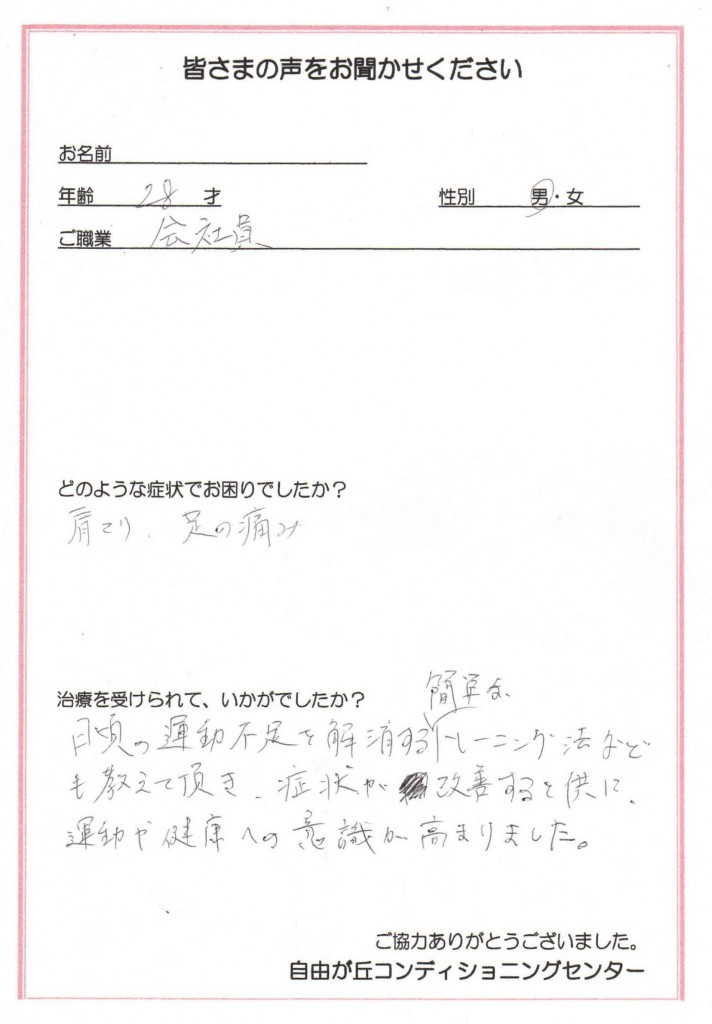 皆さまの声をお聞かせください
お名前
年齢 28 才 性別 男・女
ご職業 会社員
どのような症状でお困りでしたか?
肩こり、足の痛み
治療を受けられて、いかがでしたか?
簡単な
日頃の運動不足を解消するトレーニング法など
も教えて頂き、症状が改善すると供に、
運動や健康への意識が高まりました。
ご協力ありがとうございました。
自由が丘コンディショニングセンター